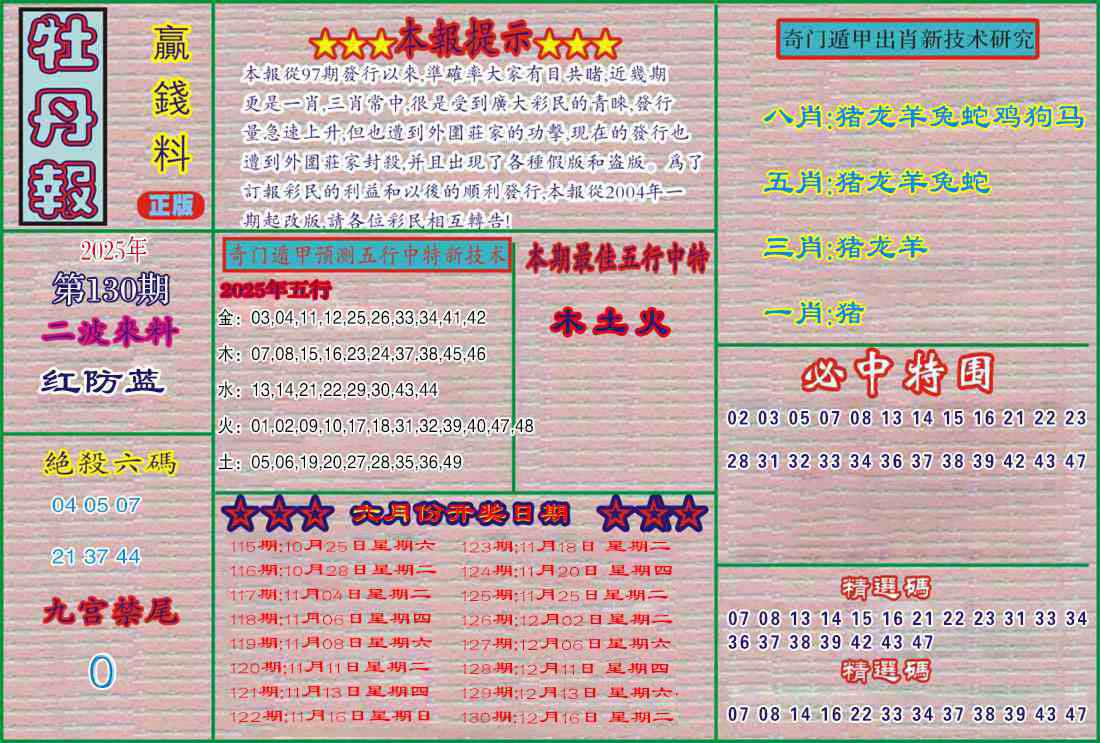 牡丹報
贏錢料
正版
2025年
第130期
二波來料
红防蓝
絕殺六碼
04 05 07
21 37 44
九宫禁尾
0
★★★本報提示★★★
本報從97期發行以來,準確率大家有目共睹,近幾期
更是一肖,三肖常中,很是受到廣大彩民的青睞,發行
量急速上升,但也遭到外圍莊家的功擊,現在的發行也
遭到外圍莊家封殺,并且出現了各種假版和盗版。爲了
訂報彩民的利益和以後的順利發行,本報從2004年一
期起改版,請各位彩民相互轉告!
奇门遁甲预测五行中特新技术
2025年五行
金：03,04,11,12,25,26,33,34,41,42
木：07,08,15,16,23,24,37,38,45,46
水：13,14,21,22,29,30,43,44
火：01,02,09,10,17,18,31,32,39,40,47,48
土：05,06,19,20,27,28,35,36,49
本期最佳五行中特
木土火
六月份开奖日期
115期:10月25日星期六
116期:10月28日星期二
117期:11月04日星期二
118期:11月06日星期四
119期:11月08日星期六
120期:11月11日星期二
121期:11月13日星期四
122期:11月16日星期日
123期:11月18日 星期二
124期:11月20日 星期四
125期:11月25日 星期二
126期:12月02日 星期二
127期:12月06日 星期六
128期:12月11日 星期四
129期:12月13日 星期六
130期:12月16日 星期二
奇门遁甲出肖新技术研究
八肖:猪龙羊兔蛇鸡狗马
五肖:猪龙羊兔蛇
三肖:猪龙羊
一肖:猪
必中特围
02 03 05 07 08 13 14 15 16 21 22 23
28 31 32 33 34 36 37 38 39 42 43 47
精選碼
07 08 13 14 15 16 21 22 23 31 33 34
36 37 38 39 42 43 47
精選碼
07 08 14 16 22 33 34 37 38 39 43 47